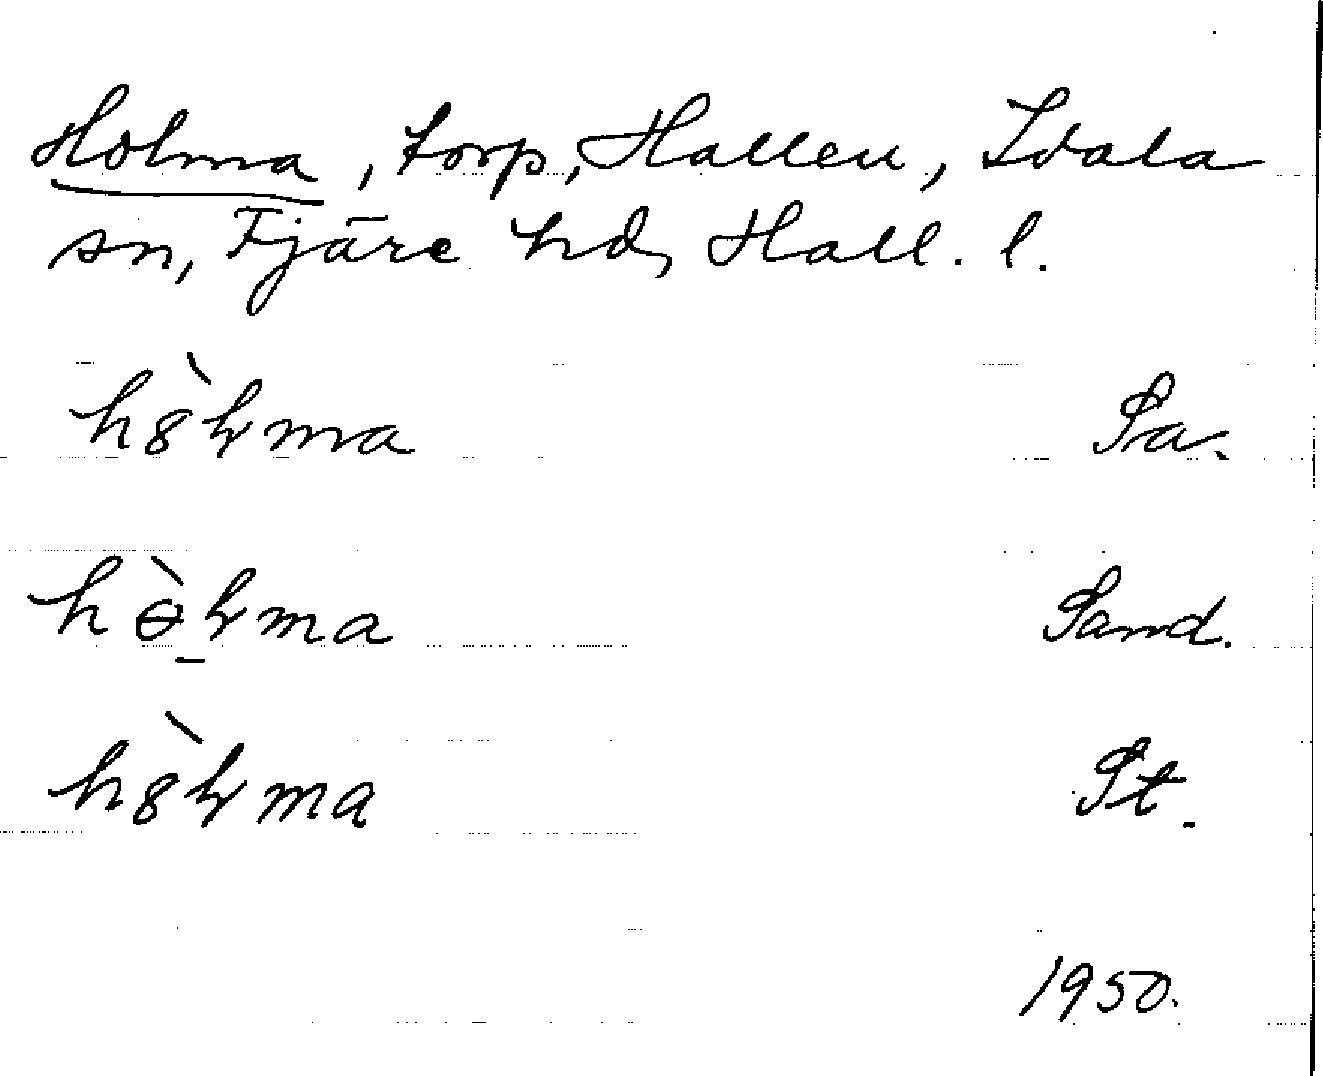 Holma, torp, Hallen, Idala
sn, Fjäre hd, Hall. l.
hȣ̀ɫma Sa.
hɵ̀ɫma Sand.
hȣ̀ɫma St.
1950.